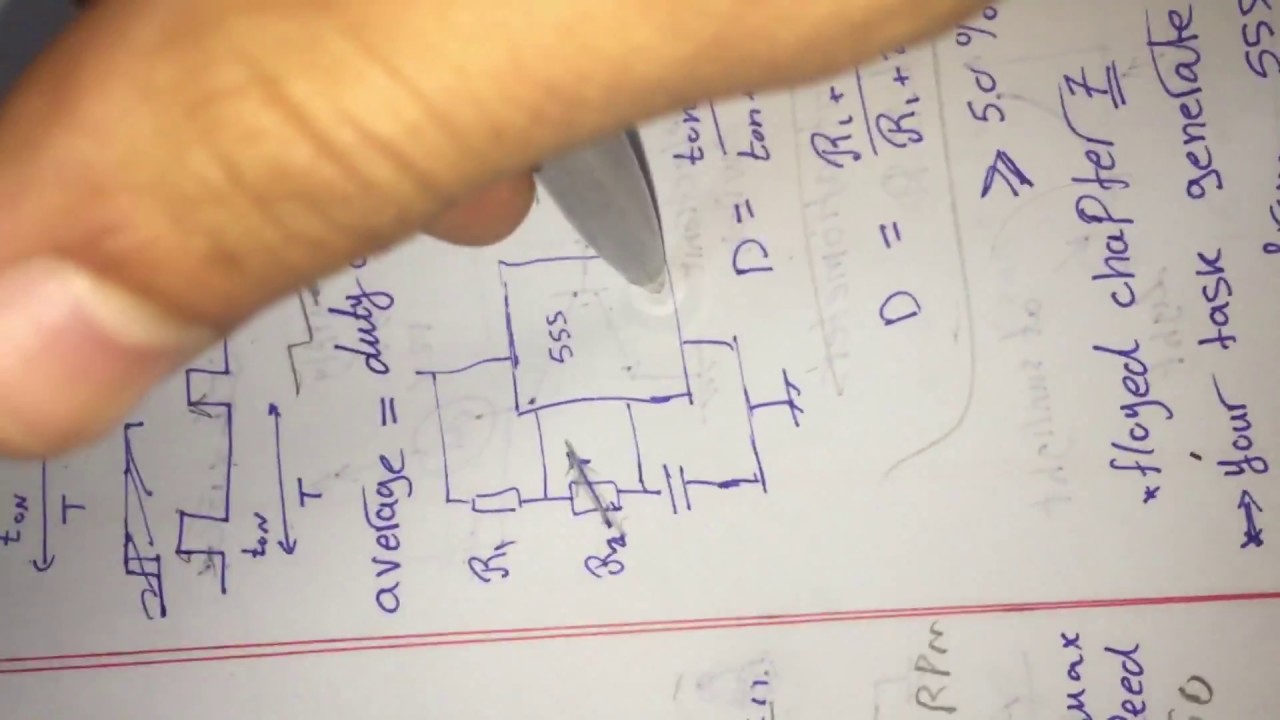 tON
T
tON
T
average = duty
R1
R2
555
D = ton
ton
D = R1 +
R1 +
≥ 50 %
* floyed chapter 7
* → your task generate
555
RPM
max
peed